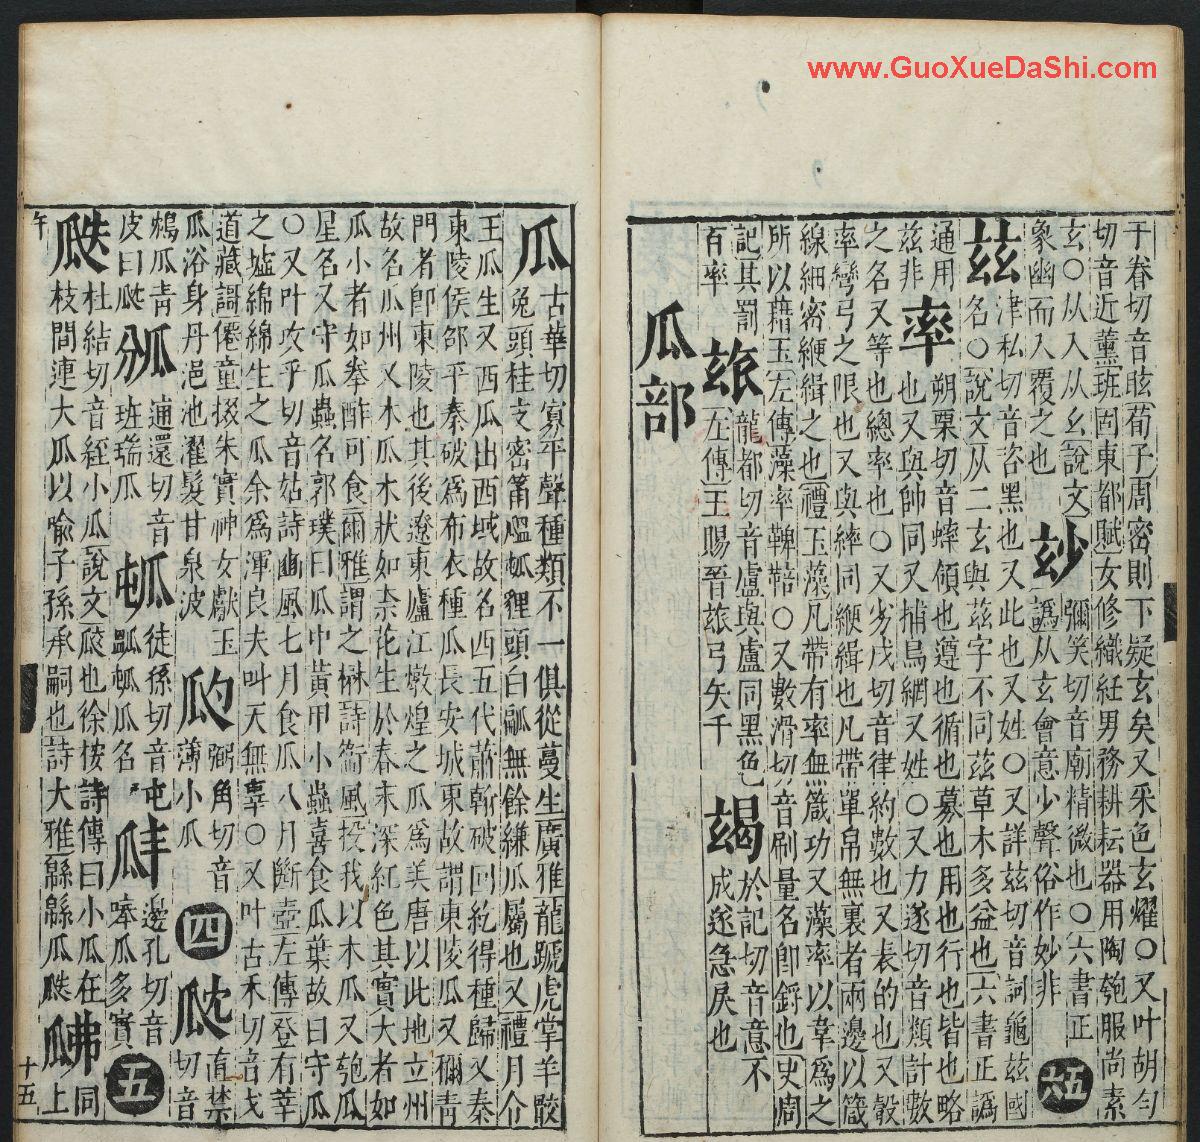 www.GuoXueDaShi.com
于眷切音眩荀子周密則下疑玄矣又采色玄燿〇又叶胡勻
切音近薰班固東都賦女修織紝男務耕耘器用陶匏服尚素
玄〇从入从幺說文 玅 彌笑切音廟精微也〇六書正
象幽而入覆之也 譌从玄會意少聲俗作妙非 五六
玆 津私切音咨黑也又此也又姓〇又詳玆切音訶龜玆國
名〇說文从二玄與茲字不同茲草木多益也六書正譌
通用 率 朔栗切音蟀領也遵也循也募也用也行也皆也略
玆非 也又與帥同又捕鳥網又姓〇又力遂切音類計數
之名又等也總率也〇又劣戌切音律約數也又表的也又彀
率彎弓之限也又與繂同綆緝也凡帶單帛無裏者兩邊以箴
線細密綆緝之也禮玉藻凡帶有率無箴功又藻率以韋爲之
所以藉玉左傳藻率鞞鞛〇又數滑切音刷量名卽鋝也史周
記其罰 玈 龍都切音盧與盧同黑色 䇶 於記切音意不
百率 左傳王賜晉玈弓矢千 成遂急戾也
瓜部
瓜 古華切寡平聲種類不一俱從蔓生廣雅龍蹏虎掌羊骹
兔頭桂支密筩瓝狸頭白瓤無餘縑瓜屬也又禮月令
王瓜生又西瓜出西域故名西五代蕭翰破回紇得種歸又秦
東陵侯邵平秦破爲布衣種瓜長安城東故謂東陵瓜又禰靑
門者卽東陵也其後遼東廬江燉煌之瓜爲美唐以此地立州
故名瓜州又木瓜木狀如柰花生於春末深紅色其實大者如
瓜小者如拳酢可食爾雅謂之楙詩衞風投我以木瓜又匏瓜
星名又守瓜蟲名郭璞曰瓜中黃甲小蟲喜食瓜葉故曰守瓜
〇又叶攻乎切音姑詩豳風七月食瓜八月斷壺左傳登有莘
之墟綿綿生之瓜余爲渾良夫叫天無辜〇又叶古禾切音戈
道藏謌僊童掇朱實神女獻玉 瓝 弼角切音 四 瓭 直禁
瓜浴身丹浥池濯髮甘泉波 薄小瓜 切音
鴆瓜靑 逋還切音 徒孫切音屯 邊孔切音
皮曰瓭 班瑞瓜 瓜名 琫瓜多實 五
瓞 杜結切音絰小瓜說文瓝也徐按詩傳曰小瓜在 同
枝間連大瓜以喻子孫承嗣也詩大雅緜緜瓜瓞 上
午 十五